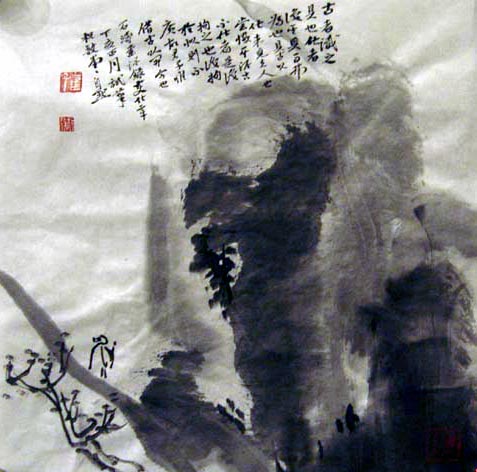 古者識之
具也化者
識其具而弗
為也具古以
化未見夫人也
嘗憾其泥古
不化者是識
拘之也識拘
於似則不
廣故君子惟
借古以開今也
石濤画語錄變化章
丁亥四月試筆